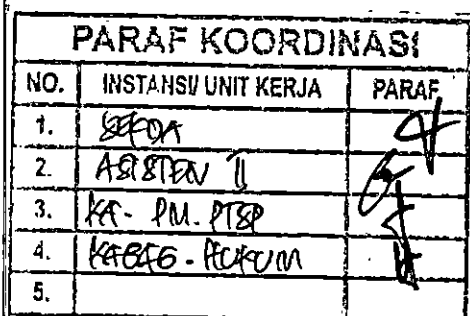 PARAF KOORDINASI
NO. INSTANSI/ UNIT KERJA PARAF
1. SEKDA
2. ASISTEN II
3. KA- PM. PTSP
4. KABAG - HUKUM
5.